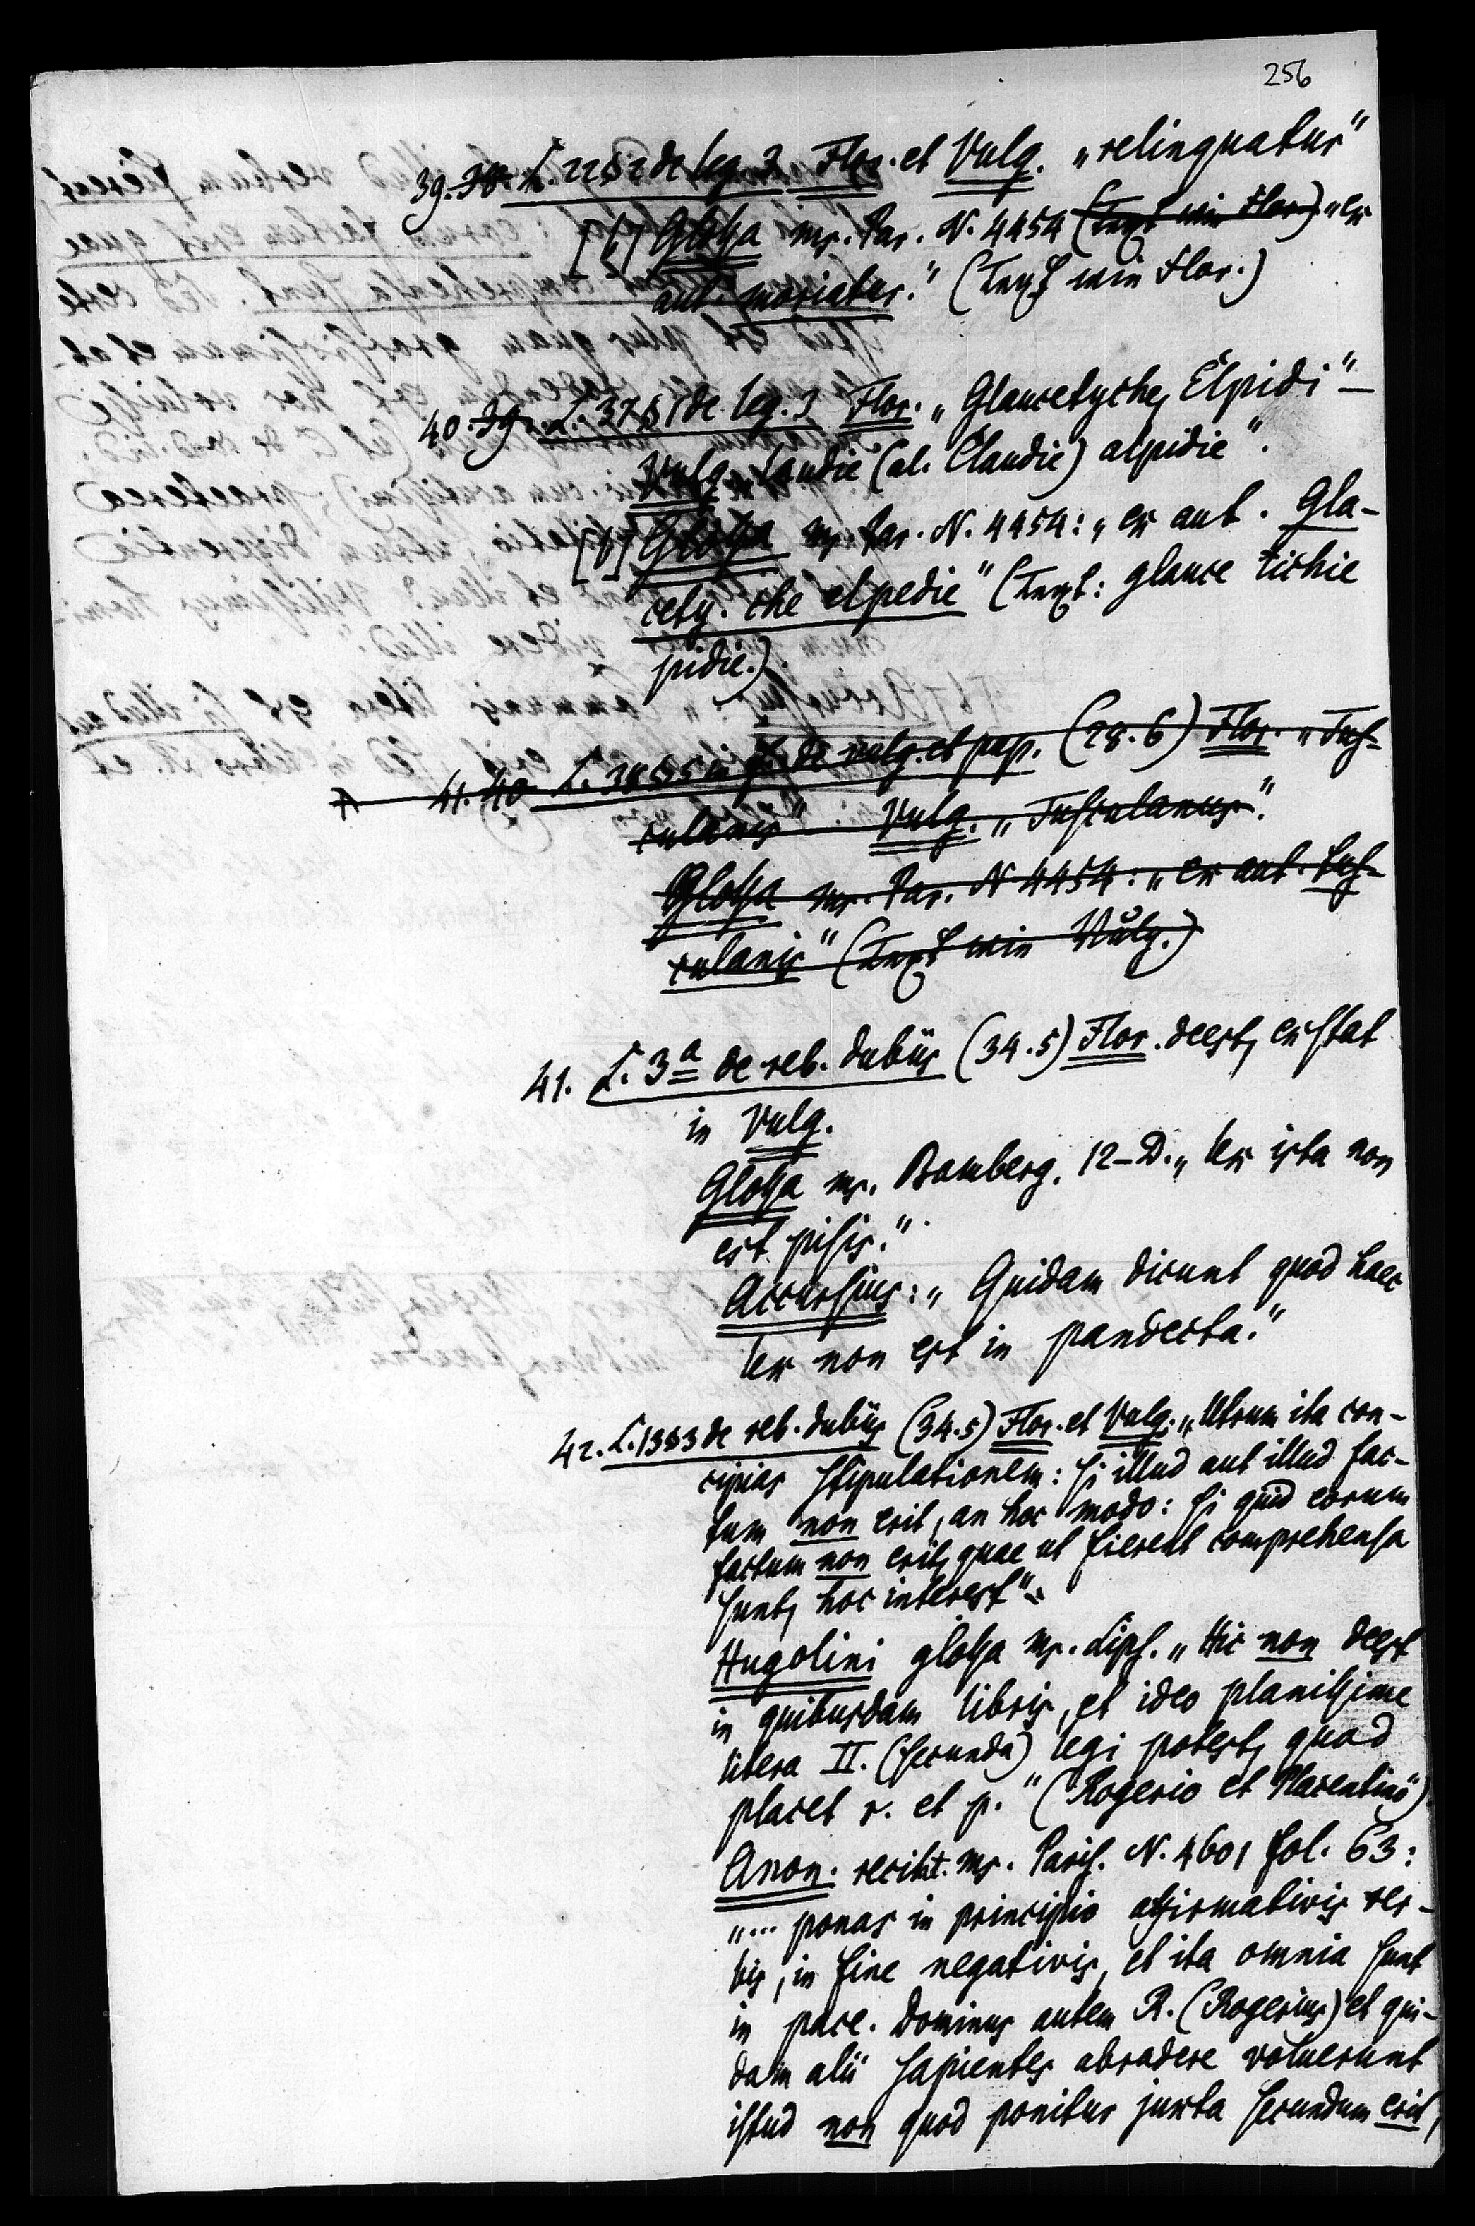 256
39. 38. L. 22 § 2 de leg. 2 Flor. et Vulg. „relinquatur"
[b] Glossa ms. Par. N. 4454 (Text wie Flor.) „er
aut. moriatur." (Text wie Flor.)
40. 39. L. 37 § 1 de leg. 3 Flor. „Glaucetyche, Elpidi" –
Vulg. laudie (al. Claudie) alpidie".
[b] Glossa ms. Par. N. 4454: „er aut. Gla-
cety. che elpedie" (Text: glauce tichie
pidie.)
41. 40. L. 38 § 5 de vulg. et pup. (28. 6) Flor. „Tus-
culanis" Vulg. „Tusculanus".
Glossa ms. Par. N 4454: „er aut. tus-
culanis" (Text wie Vulg.)
41. L. 3a de reb. dubiis (34. 5) Flor. deest, exstat
in Vulg.
Glossa ms. Bamberg. 12–D. „lex ista non
est pisis."
Accursius: „Quidam dicunt quod haec
lex non est in pandecta."
42. L. 13 § 3 de reb. dubiis (34. 5) Flor. et Vulg. „Utrum ita con-
cipias stipulationem: si illud aut illud fac-
tum non erit, an hoc modo: si quid eorum
factum non erit, quae ut fierent comprehensa
sunt, hoc interest".
Hugolini glossa ms. Lips. „Hic non deest
in quibusdam libris, et ideo planissime
litera II. (secunda) legi potest, quod
placet r. et p." (Rogerio et Placentino)
Anon. recitat. ms. Paris. N. 4601 fol. 63:
„... ponas in principio affirmativis ver-
bis, in fine negativis, et ita omnia sunt
in pace. Dominus autem R. (Rogerius) et qui-
dam alii sapientes abradere voluerunt
istud non quod ponitur juxta secundum erit,